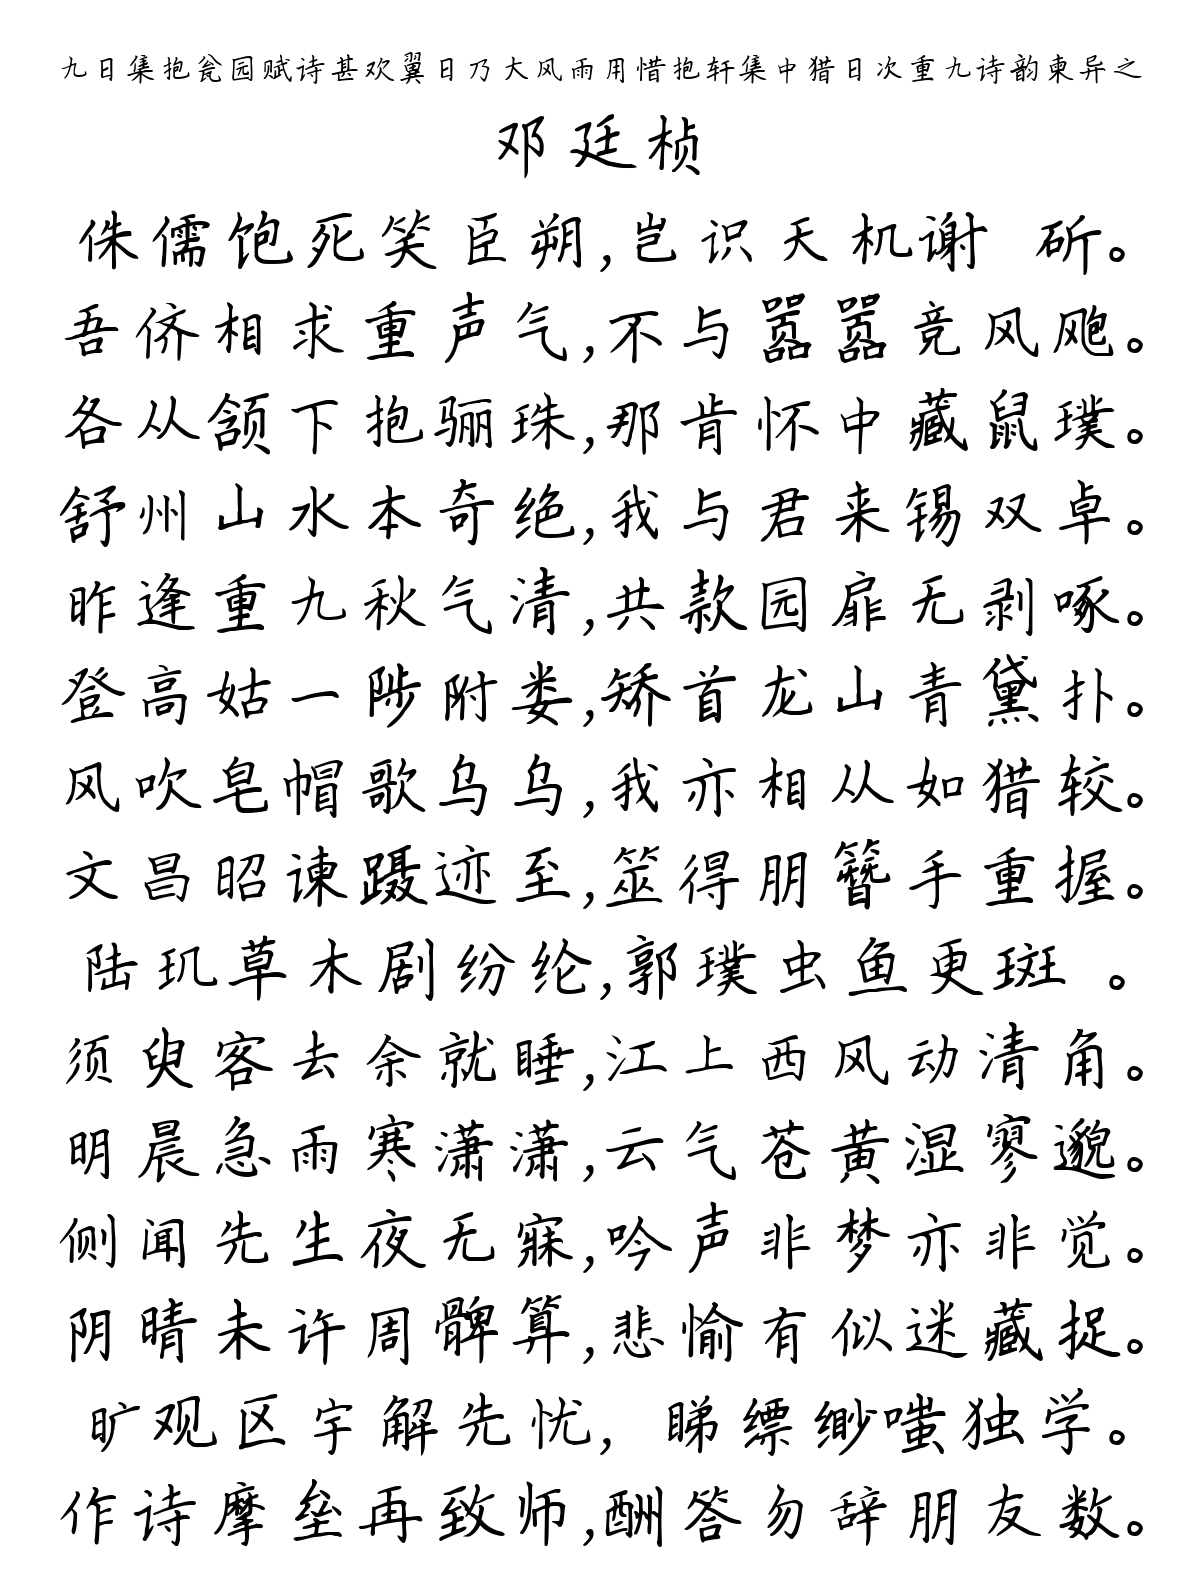 九日集抱瓮园赋诗甚欢翼日乃大风雨用惜抱轩集中猎日次重九诗韵柬异之
邓廷桢
侏儒饱死笑臣朔,岂识天机谢 斫。
吾侪相求重声气,不与嚣嚣竞风飑。
各从颔下抱骊珠,那肯怀中藏鼠璞。
舒州山水本奇绝,我与君来锡双卓。
昨逢重九秋气清,共款园扉无剥啄。
登高姑一陟附娄,矫首龙山青黛扑。
风吹皂帽歌乌乌,我亦相从如猎较。
文昌昭谏蹑迹至,筮得朋簪手重握。
陆玑草木剧纷纶,郭璞虫鱼更斑 。
须臾客去余就睡,江上西风动清角。
明晨急雨寒潇潇,云气苍黄湿寥邈。
侧闻先生夜无寐,吟声非梦亦非觉。
阴晴未许周髀算,悲愉有似迷藏捉。
旷观区宇解先忧, 睇缥缈嗤独学。
作诗摩垒再致师,酬答勿辞朋友数。